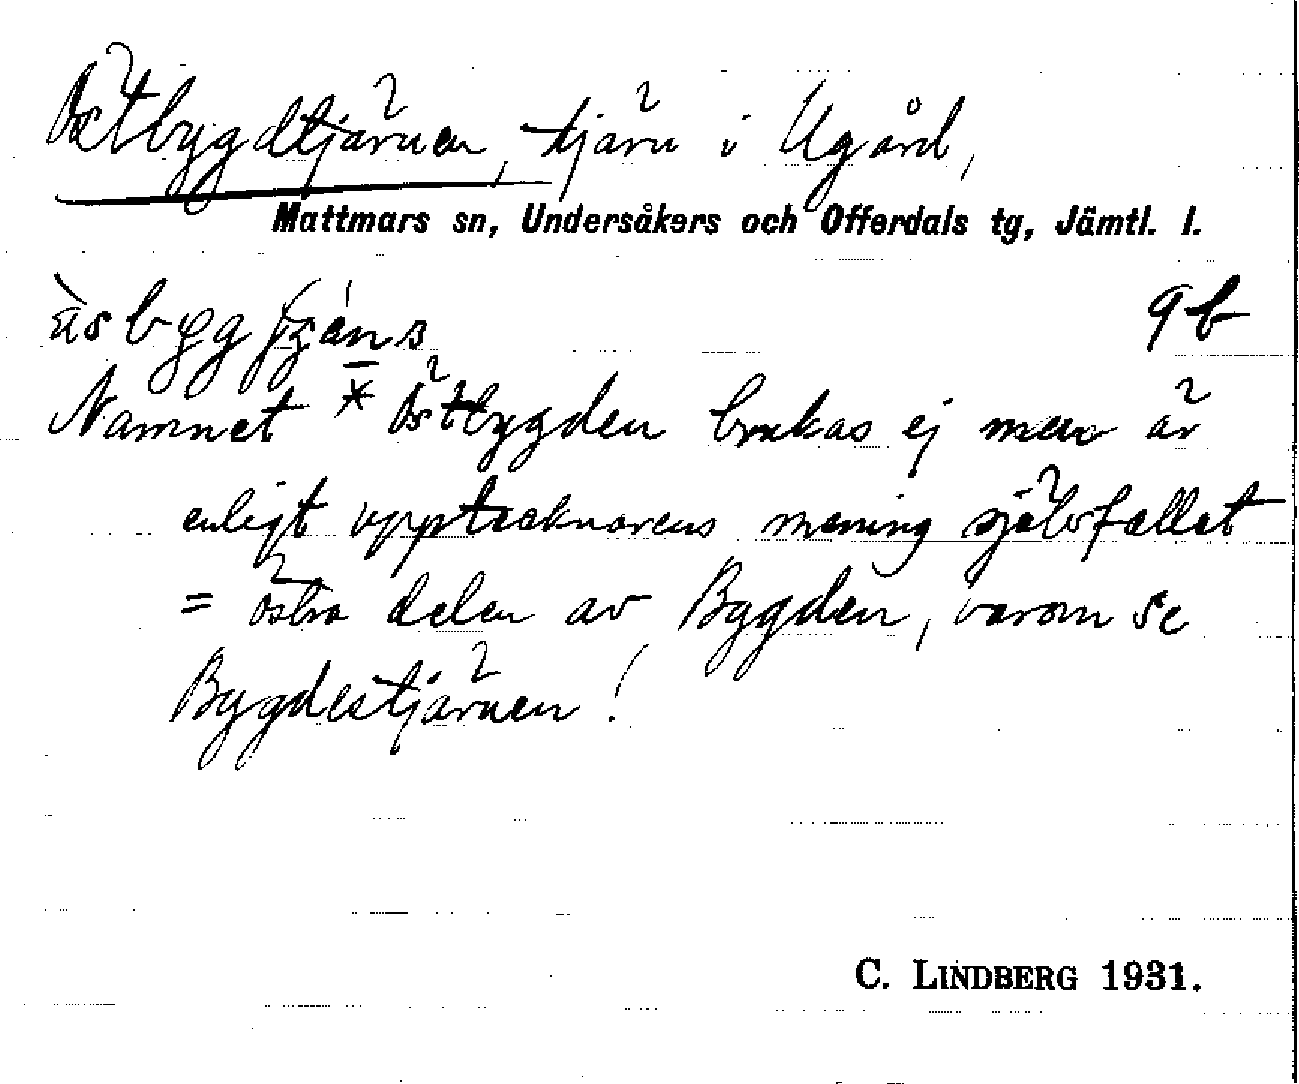 Östbygdtjärnen, tjärn i Ugård,
Mattmars sn, Undersåkers och Offerdals tg, Jämtl. l.
9b
Namnet * Östbygden brukas ej men är
enligt upptecknarens mening självfallet
= östra delen av Bygden, varom se
Bygdestjärnen!
C. LINDBERG 1931.